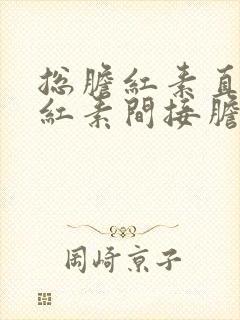 総膽紅素直
紅素間接膽
岡崎京子